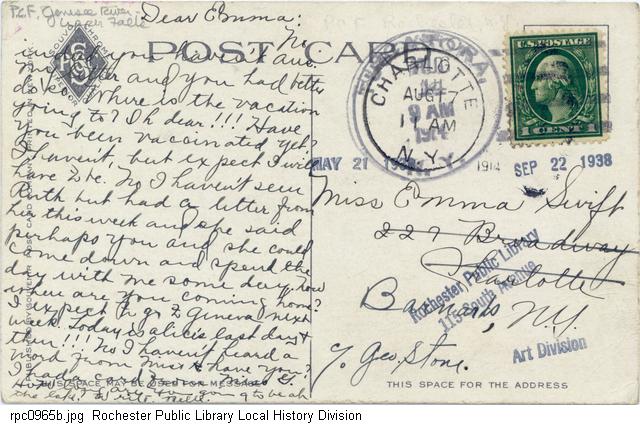 P.C.F. Genesee River-
Upper Falls
Dear Emma:
POST CARD
is that you haven't
letter and you had better
do so. Where is the vacation
going to? Oh dear!!! Have
you been vaccinated yet?
I haven't, but expect I will
have to be. No I haven't seen
Ruth but had a letter from
her this week and she said
perhaps you and she could
come down and spend the
day with me some day, how
when are you coming home?
I expect to go to Geneva next
week. Today is alice's last day &
then !!! No I haven't heard a
word from miss & have you?
I had a card
THIS SPACE MAY BE USED FOR MESSAGE
CHARLOTTE
AUG 17
AM
N.Y.
9 AM
N.Y.
U.S. POSTAGE
1 CENT 1
MAY 21
1914
SEP 22 1938
Miss Emma Swift
227 Broadway
Charlotte
Barnards, N.Y.
℅ Geo. Stone.
Rochester Public Library
115 South Avenue
Art Division
THIS SPACE FOR THE ADDRESS
rpc0965b.jpg Rochester Public Library Local History Division